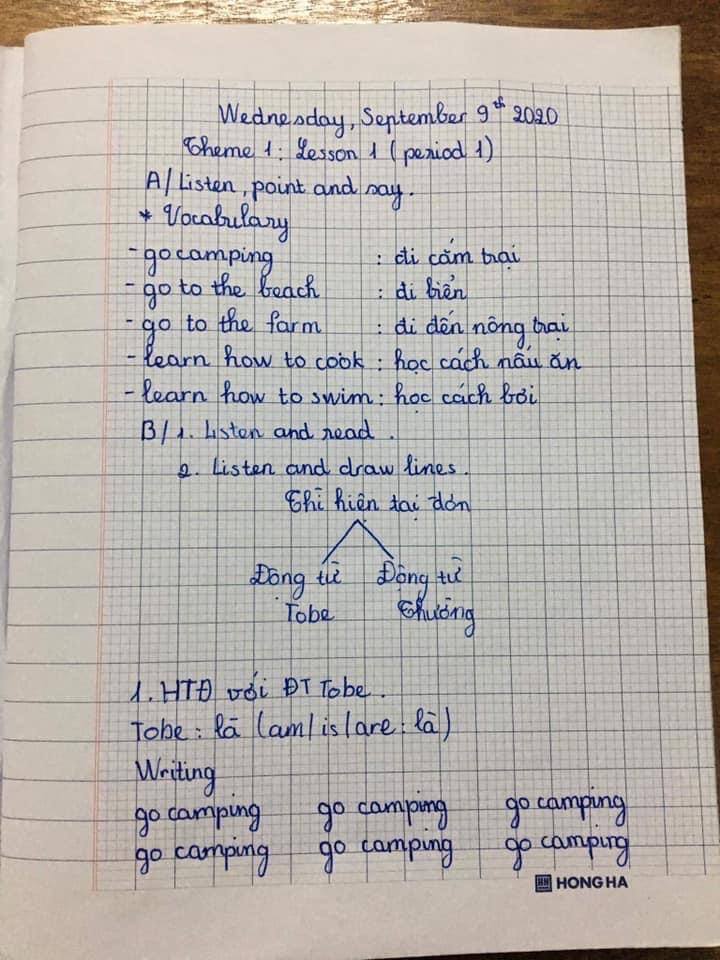 Wednesday, September 9th 2020
Theme 1: Lesson 1 (period 1)
A/ Listen, point and say.
* Vocabulary
- go camping : đi cắm trại
- go to the beach : đi biển
- go to the farm : đi đến nông trại
- learn how to cook : học cách nấu ăn
- learn how to swim : học cách bơi
B/ 1. Listen and read.
2. Listen and draw lines.
Thì hiện tại đơn
Động từ Động từ
Tobe Thường
1. HTĐ với ĐT Tobe.
Tobe: là (am/is/are: là)
Writing
go camping go camping go camping
go camping go camping go camping
HH HONG HA